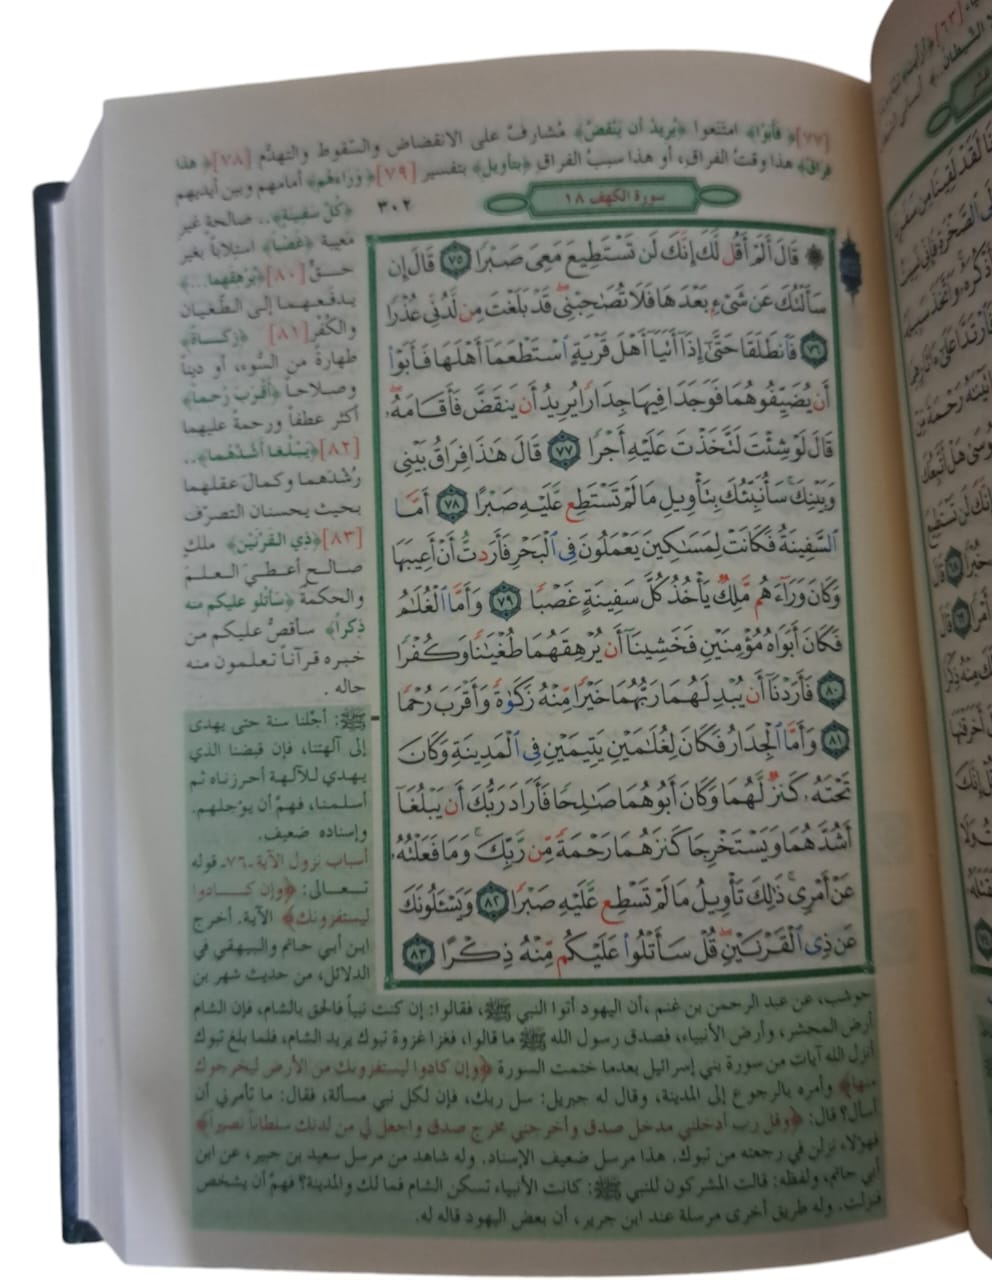 [٧٧]﴿فأبوا﴾ امتنعوا ﴿يريد أن ينقض﴾ مشارف على الانقضاض والسقوط والتهدم [٧٨]﴿هذا
فراق﴾ هذا وقت الفراق، أو هذا سبب الفراق ﴿بتأويل﴾ بتفسير [٧٩]﴿وراءهم﴾ أمامهم وبين أيديهم
سورة الكهف ١٨
٣٠٢
﴿كل سفينة﴾.. صالحة غير
معيبة ﴿غصباً﴾ استلاباً بغير
حق [٨٠]﴿يرهقهما...﴾
يدفعهما إلى الطغيان
والكفر [٨١] ﴿زكاة﴾
طهارة من السوء، أو ديناً
وصلاحاً ﴿أقرب رحماً﴾
أكثر عطفاً ورحمة عليهما
[٨٢]﴿يبلغا أشدهما﴾..
رشدهما وكمال عقلهما
بحيث يحسنان التصرف
[٨٣]﴿ذي القرنين﴾ ملك
صالح أعطي العلم
والحكمة ﴿سأتلو عليكم منه
ذكراً﴾ سأقص عليكم من
خبره قرآناً تعلمون منه
حاله .
۞ قَالَ أَلَمْ أَقُل لَّكَ إِنَّكَ لَن تَسْتَطِيعَ مَعِىَ صَبْرًا ٧٥ قَالَ إِن
سَأَلْتُكَ عَن شَىْءٍ بَعْدَهَا فَلَا تُصَٰحِبْنِى ۖ قَدْ بَلَغْتَ مِن لَّدُنِّى عُذْرًا
٧٦ فَٱنطَلَقَا حَتَّىٰٓ إِذَآ أَتَيَآ أَهْلَ قَرْيَةٍ ٱسْتَطْعَمَآ أَهْلَهَا فَأَبَوْا۟
أَن يُضَيِّفُوهُمَا فَوَجَدَا فِيهَا جِدَارًا يُرِيدُ أَن يَنقَضَّ فَأَقَامَهُۥ ۖ
قَالَ لَوْ شِئْتَ لَتَّخَذْتَ عَلَيْهِ أَجْرًا ٧٧ قَالَ هَٰذَا فِرَاقُ بَيْنِى
وَبَيْنِكَ ۚ سَأُنَبِّئُكَ بِتَأْوِيلِ مَا لَمْ تَسْتَطِع عَّلَيْهِ صَبْرًا ٧٨ أَمَّا
ٱلسَّفِينَةُ فَكَانَتْ لِمَسَٰكِينَ يَعْمَلُونَ فِى ٱلْبَحْرِ فَأَرَدتُّ أَنْ أَعِيبَهَا
وَكَانَ وَرَآءَهُم مَّلِكٌ يَأْخُذُ كُلَّ سَفِينَةٍ غَصْبًا ٧٩ وَأَمَّا ٱلْغُلَٰمُ
فَكَانَ أَبَوَاهُ مُؤْمِنَيْنِ فَخَشِينَآ أَن يُرْهِقَهُمَا طُغْيَٰنًا وَكُفْرًا
٨٠ فَأَرَدْنَآ أَن يُبْدِلَهُمَا رَبُّهُمَا خَيْرًا مِّنْهُ زَكَوٰةً وَأَقْرَبَ رُحْمًا
٨١ وَأَمَّا ٱلْجِدَارُ فَكَانَ لِغُلَٰمَيْنِ يَتِيمَيْنِ فِى ٱلْمَدِينَةِ وَكَانَ
تَحْتَهُۥ كَنزٌ لَّهُمَا وَكَانَ أَبُوهُمَا صَٰلِحًا فَأَرَادَ رَبُّكَ أَن يَبْلُغَآ
أَشُدَّهُمَا وَيَسْتَخْرِجَا كَنزَهُمَا رَحْمَةً مِّن رَّبِّكَ ۚ وَمَا فَعَلْتُهُۥ
عَنْ أَمْرِى ۚ ذَٰلِكَ تَأْوِيلُ مَا لَمْ تَسْطِع عَّلَيْهِ صَبْرًا ٨٢ وَيَسْـَٔلُونَكَ
عَن ذِى ٱلْقَرْنَيْنِ ۖ قُلْ سَأَتْلُوا۟ عَلَيْكُم مِّنْهُ ذِكْرًا ٨٣
ﷺ: أجلنا سنة حتى يهدى
إلى آلهتنا، فإن قبضنا الذي
يهدي للآلهة أحرزناه ثم
أسلمنا، فهم أن يؤجلهم.
وإسناده ضعيف.
أسباب نزول الآية ـ ٧٦ ـ قوله
تعالى: ﴿وإن كادوا
ليستفزونك﴾ الآية. أخرج
ابن أبي حاتم والبيهقي في
الدلائل، من حديث شهر بن
حوشب، عن عبد الرحمن بن غنم ،أن اليهود أتوا النبي ﷺ، فقالوا: إن كنت نبياً فالحق بالشام، فإن الشام
أرض المحشر، وأرض الأنبياء، فصدق رسول الله ﷺ ما قالوا، فغزا غزوة تبوك يريد الشام، فلما بلغ تبوك
أنزل الله آيات من سورة بني إسرائيل بعدما ختمت السورة ﴿وإن كادوا ليستفزونك من الأرض ليخرجوك
منها﴾ وأمره بالرجوع إلى المدينة، وقال له جبريل: سل ربك، فإن لكل نبي مسألة، فقال: ما تأمرني أن
أسأل؟ قال: ﴿وقل رب أدخلني مدخل صدق وأخرجني مخرج صدق واجعل لي من لدنك سلطاناً نصيراً﴾
فهؤلاء نزلن في رجعته من تبوك. هذا مرسل ضعيف الإسناد. وله شاهد من مرسل سعيد بن جبير، عن ابن
أبي حاتم، ولفظه: قالت المشركون للنبي ﷺ: كانت الأنبياء تسكن الشام فما لك والمدينة؟ فهم أن يشخص
فنزلت. وله طريق أخرى مرسلة عند ابن جرير، أن بعض اليهود قاله له.